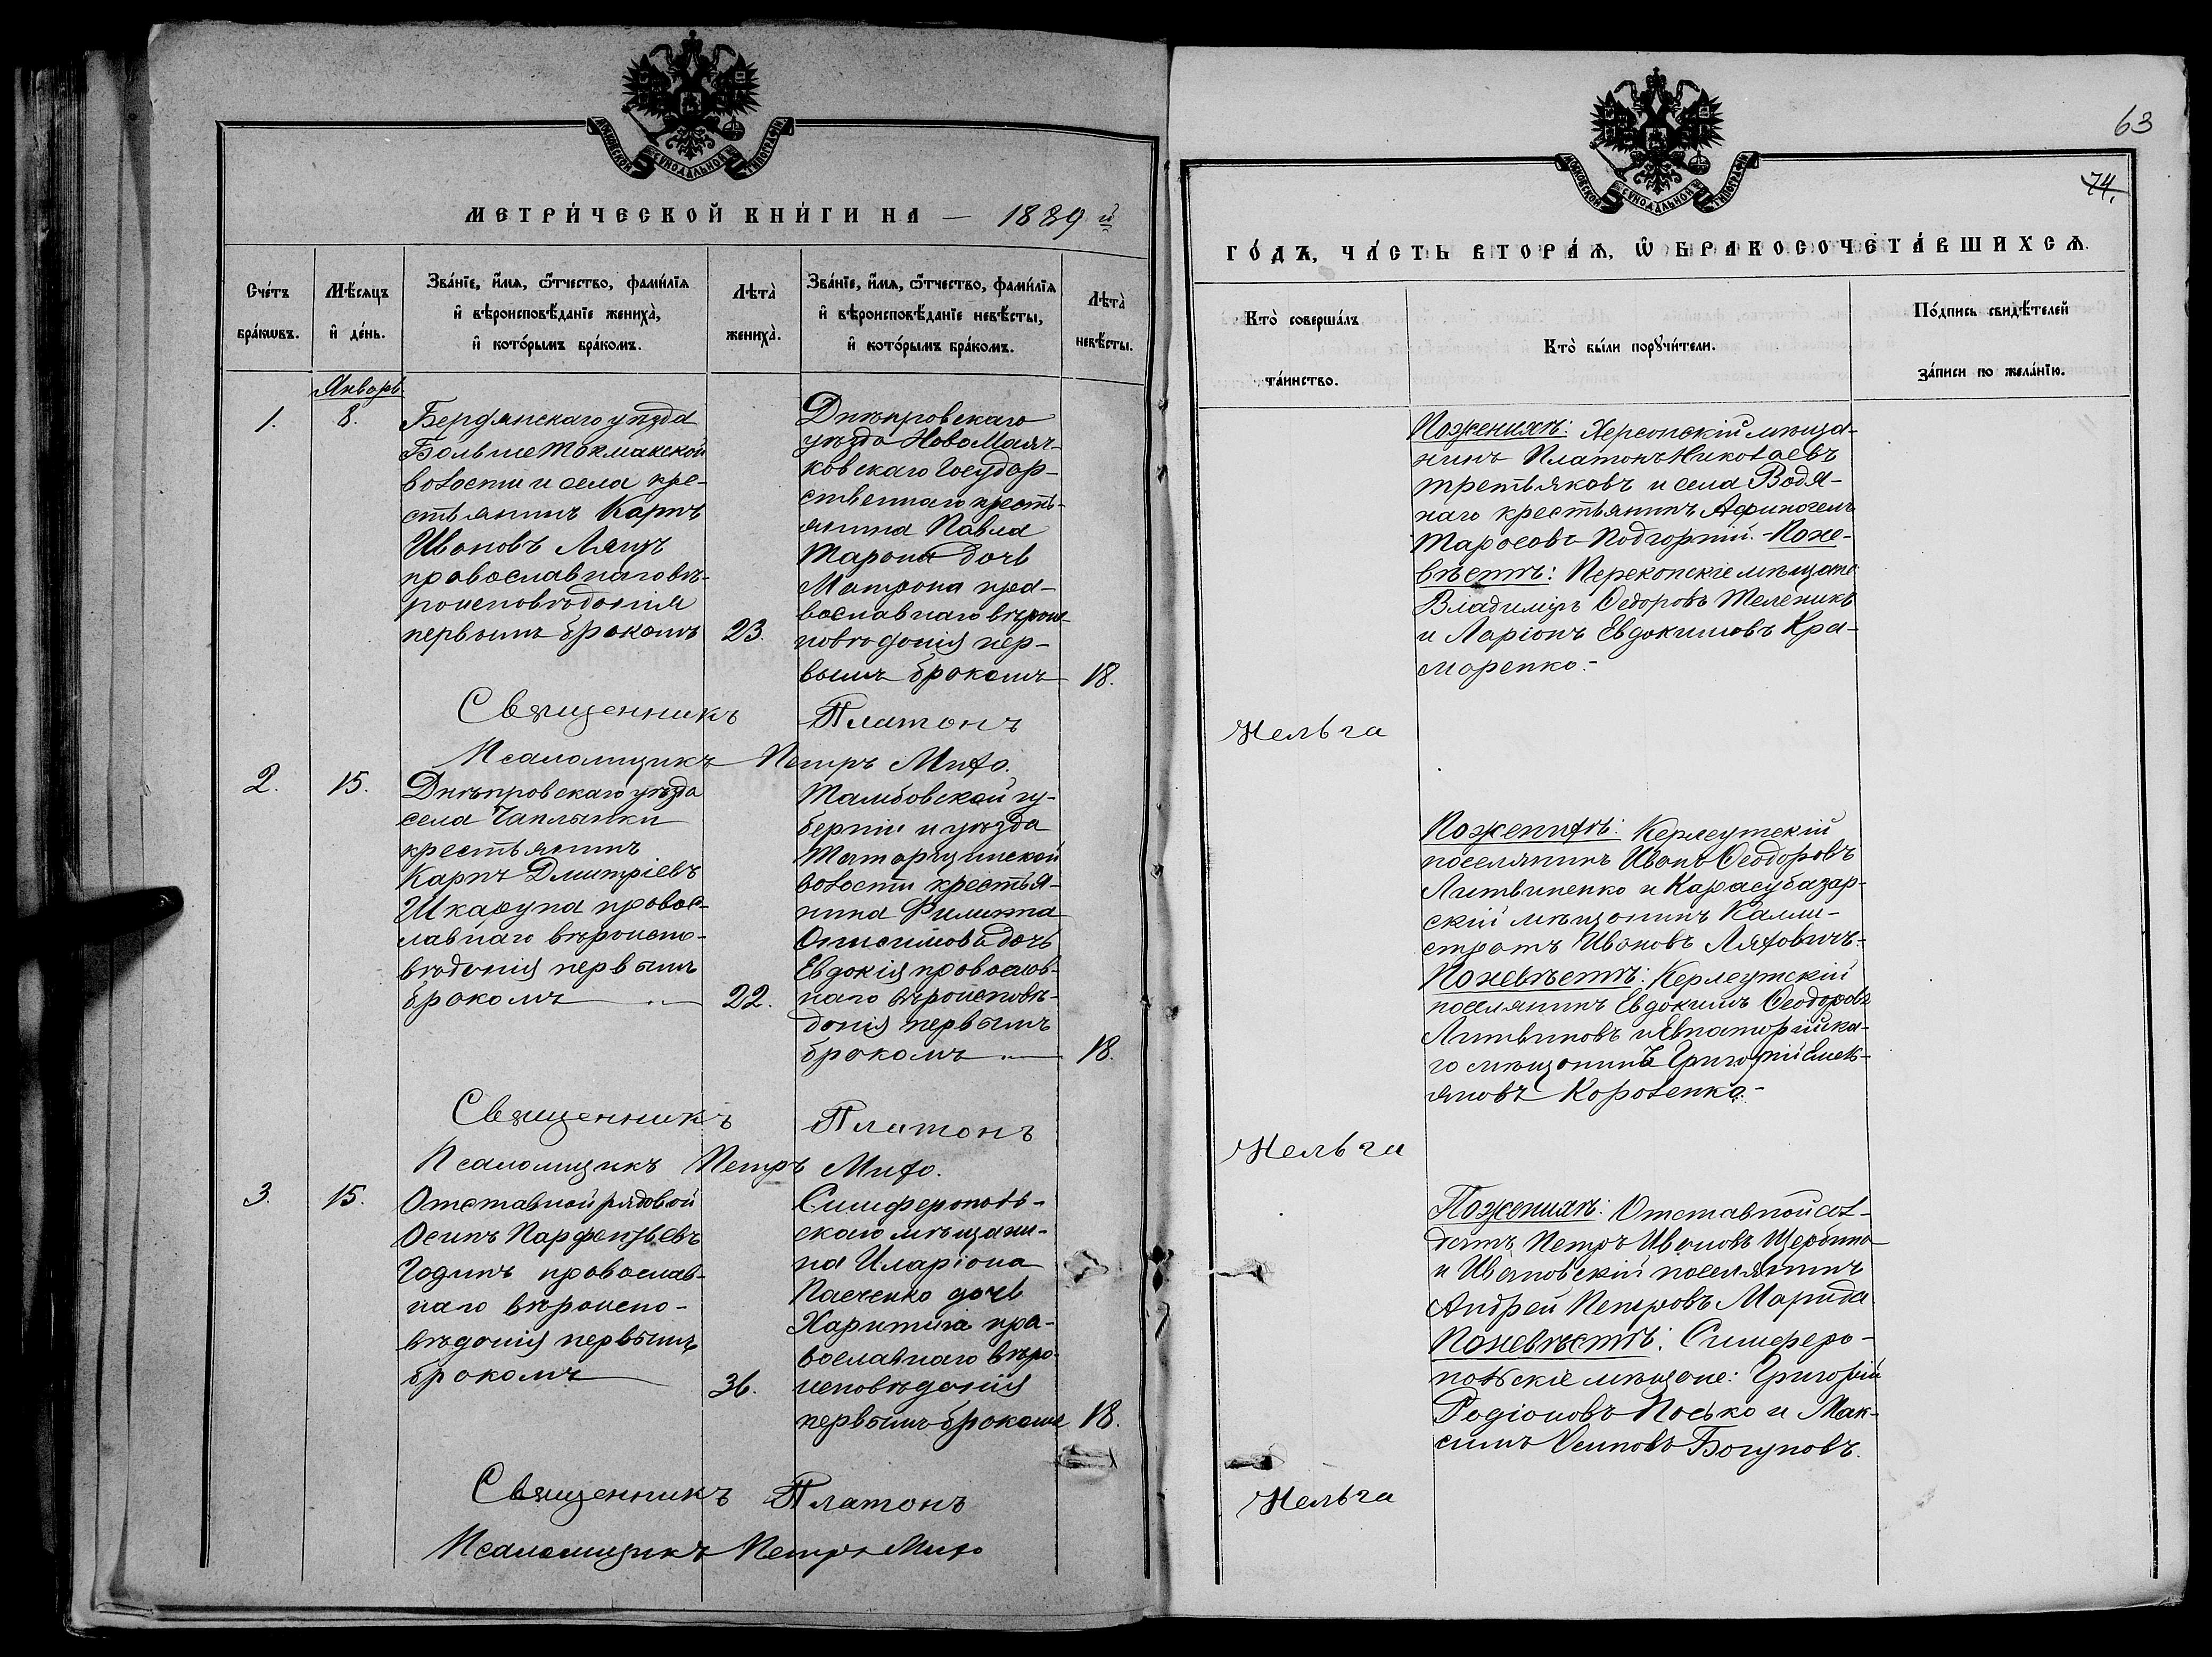 МОСКОВСКОЙ СѴНОДАЛЬНОЙ ТИПОГРАФІИ
МЕТРИ́ЧЕСКОЙ КНИ́ГИ НА — 1889 й
Сче́тъ бра́кωвъ.
Мѣ́сяцъ и҆ де́нь.
Зва́нїе, и҆́мя, ѻ҆́тчество, фами́лїя
и҆ вѣроисповѣ́данїе жениха̀,
и҆ кото́рымъ бра́комъ.
Лѣта̀ жениха̀.
Зва́нїе, и҆́мя, ѻ҆́тчество, фами́лїя
и҆ вѣроисповѣ́данїе невѣ́сты,
и҆ кото́рымъ бра́комъ.
Лѣта̀ невѣ́сты.
Январь
1.
8.
Бердянскаго уѣзда
БольшеТокмакской
волости и села кре-
стьянинъ Карпъ
Ивановъ Ляшъ
православнаго вѣ-
роисповѣданія
первымъ бракомъ
23.
Днѣпровскаго
уѣзда НовоМаяч-
ковскаго Государ-
ственнаго кресть-
янина Павла
Тарана дочь
Матрона пра-
вославнаго вѣроис-
повѣданія пер-
вымъ бракомъ
18.
Священникъ Платонъ
Псаломщикъ Петръ Михо.
2.
15.
Днѣпровскаго уѣзда
села Чаплынки
крестьянинъ
Карпъ Дмитріевъ
Шкарупа правос-
лавнаго вѣроиспо-
вѣданія первымъ
бракомъ
22.
Тамбовской гу-
берніи и уѣзда
Татарщинской
волости крестья-
нина Филиппа
Онисимова дочь
Евдокія православ-
наго вѣроисповѣ-
данія первымъ
бракомъ
18.
Священникъ Платонъ
Псаломщикъ Петръ Михо.
3.
15.
Отставной рядовой
Осипъ Парфентьевъ
Годинъ православ-
наго вѣроиспо-
вѣданія первымъ
бракомъ
36.
Симферополь-
скаго мѣщани-
на Иларіона
Пасченко дочь
Харитина пра-
вославнаго вѣро-
исповѣданія
первымъ бракомъ
18.
Священникъ Платонъ
Псаломщикъ Петръ Михо
63
74.
МОСКОВСКОЙ СѴНОДАЛЬНОЙ ТИПОГРАФІИ
ГО́ДЪ, ЧА́СТЬ ВТОРА́Ѧ, Ѡ҆ БРАКОСОЧЕТА́ВШИХСѦ.
Кто̀ соверша́лъ
та́инство.
Кто̀ бы́ли порꙋчи́тели.
По́дпись свидѣ́телей
за́писи по жела́нїю.
По женихѣ: Херсонскій мѣща-
нинъ Платонъ Николаевъ
Третьяковъ и села Водя-
наго крестьянинъ Афиногенъ
Тарасовъ Подгорній. По не-
вѣстѣ: Перекопскіе мѣщане
Владиміръ Ѳедоровъ Телепикъ
и Ларіонъ Евдокимовъ Кра-
маренко.-
Нельга
По женихѣ: Керлеутскій
поселянинъ Иванъ Ѳеодоровъ
Литвиненко и Карасубазар-
скій мѣщанинъ Калли-
стратъ Ивановъ Ляховичъ-
По невѣстѣ: Керлеутскій
поселянинъ Евдокимъ Ѳеодоровъ
Литвиновъ и Евпаторійска-
го мѣщанинъ Григорій Емель-
яновъ Короленко.-
Нельга
По женихѣ: Отставной сол-
датъ Петръ Ивановъ Щербина
и Ивановскій поселянинъ
Андрей Петровъ Марида
По невѣстѣ: Симферо-
польскіе мѣщане: Григорій
Родіоновъ Посько и Мак-
симъ Осиповъ Богуновъ.
Нельга